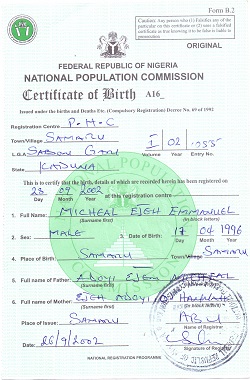 Form B.2
Caution: Any person who (1) Falsifies any of the particular on this certificate or (2) uses a falsified certificate as true knowing it to be false is liable to prosecution
ORIGINAL
FEDERAL REPUBLIC OF NIGERIA
NATIONAL POPULATION COMMISSION
Certificate of Birth A16
Issued under the births and Deaths Etc. (Compulsory Registration) Decree No. 69 of 1992
Registration Centre P.H.C
Town/Village SAMARU I 02 055
L.G.A SABON GARI Volume Year Entry No.
State KADUNA
This is to certify that the birth, details of which are recorded herein has been registered on
09 2002 at this registration centre
1. Full Name: MICHEAL EJEH EMMANUEL
(Surname first) (in block letters)
2. Sex: MALE 3. Date of Birth: 17 04 1996
Day Month Year
4. Place of Birth SAMARU SAMARU
Town/Village
5. Full Name of Father: ADOYI EJEH
(Surname first)
6. Full Name of Mother: EJEH ADOYI
(Surname first) (in block letters)
Place of Issue: SAMARU ABU
Name of Registrar
Date: 26/9/2002
Signature of Registrar
NATIONAL REGISTRATION PROGRAMME